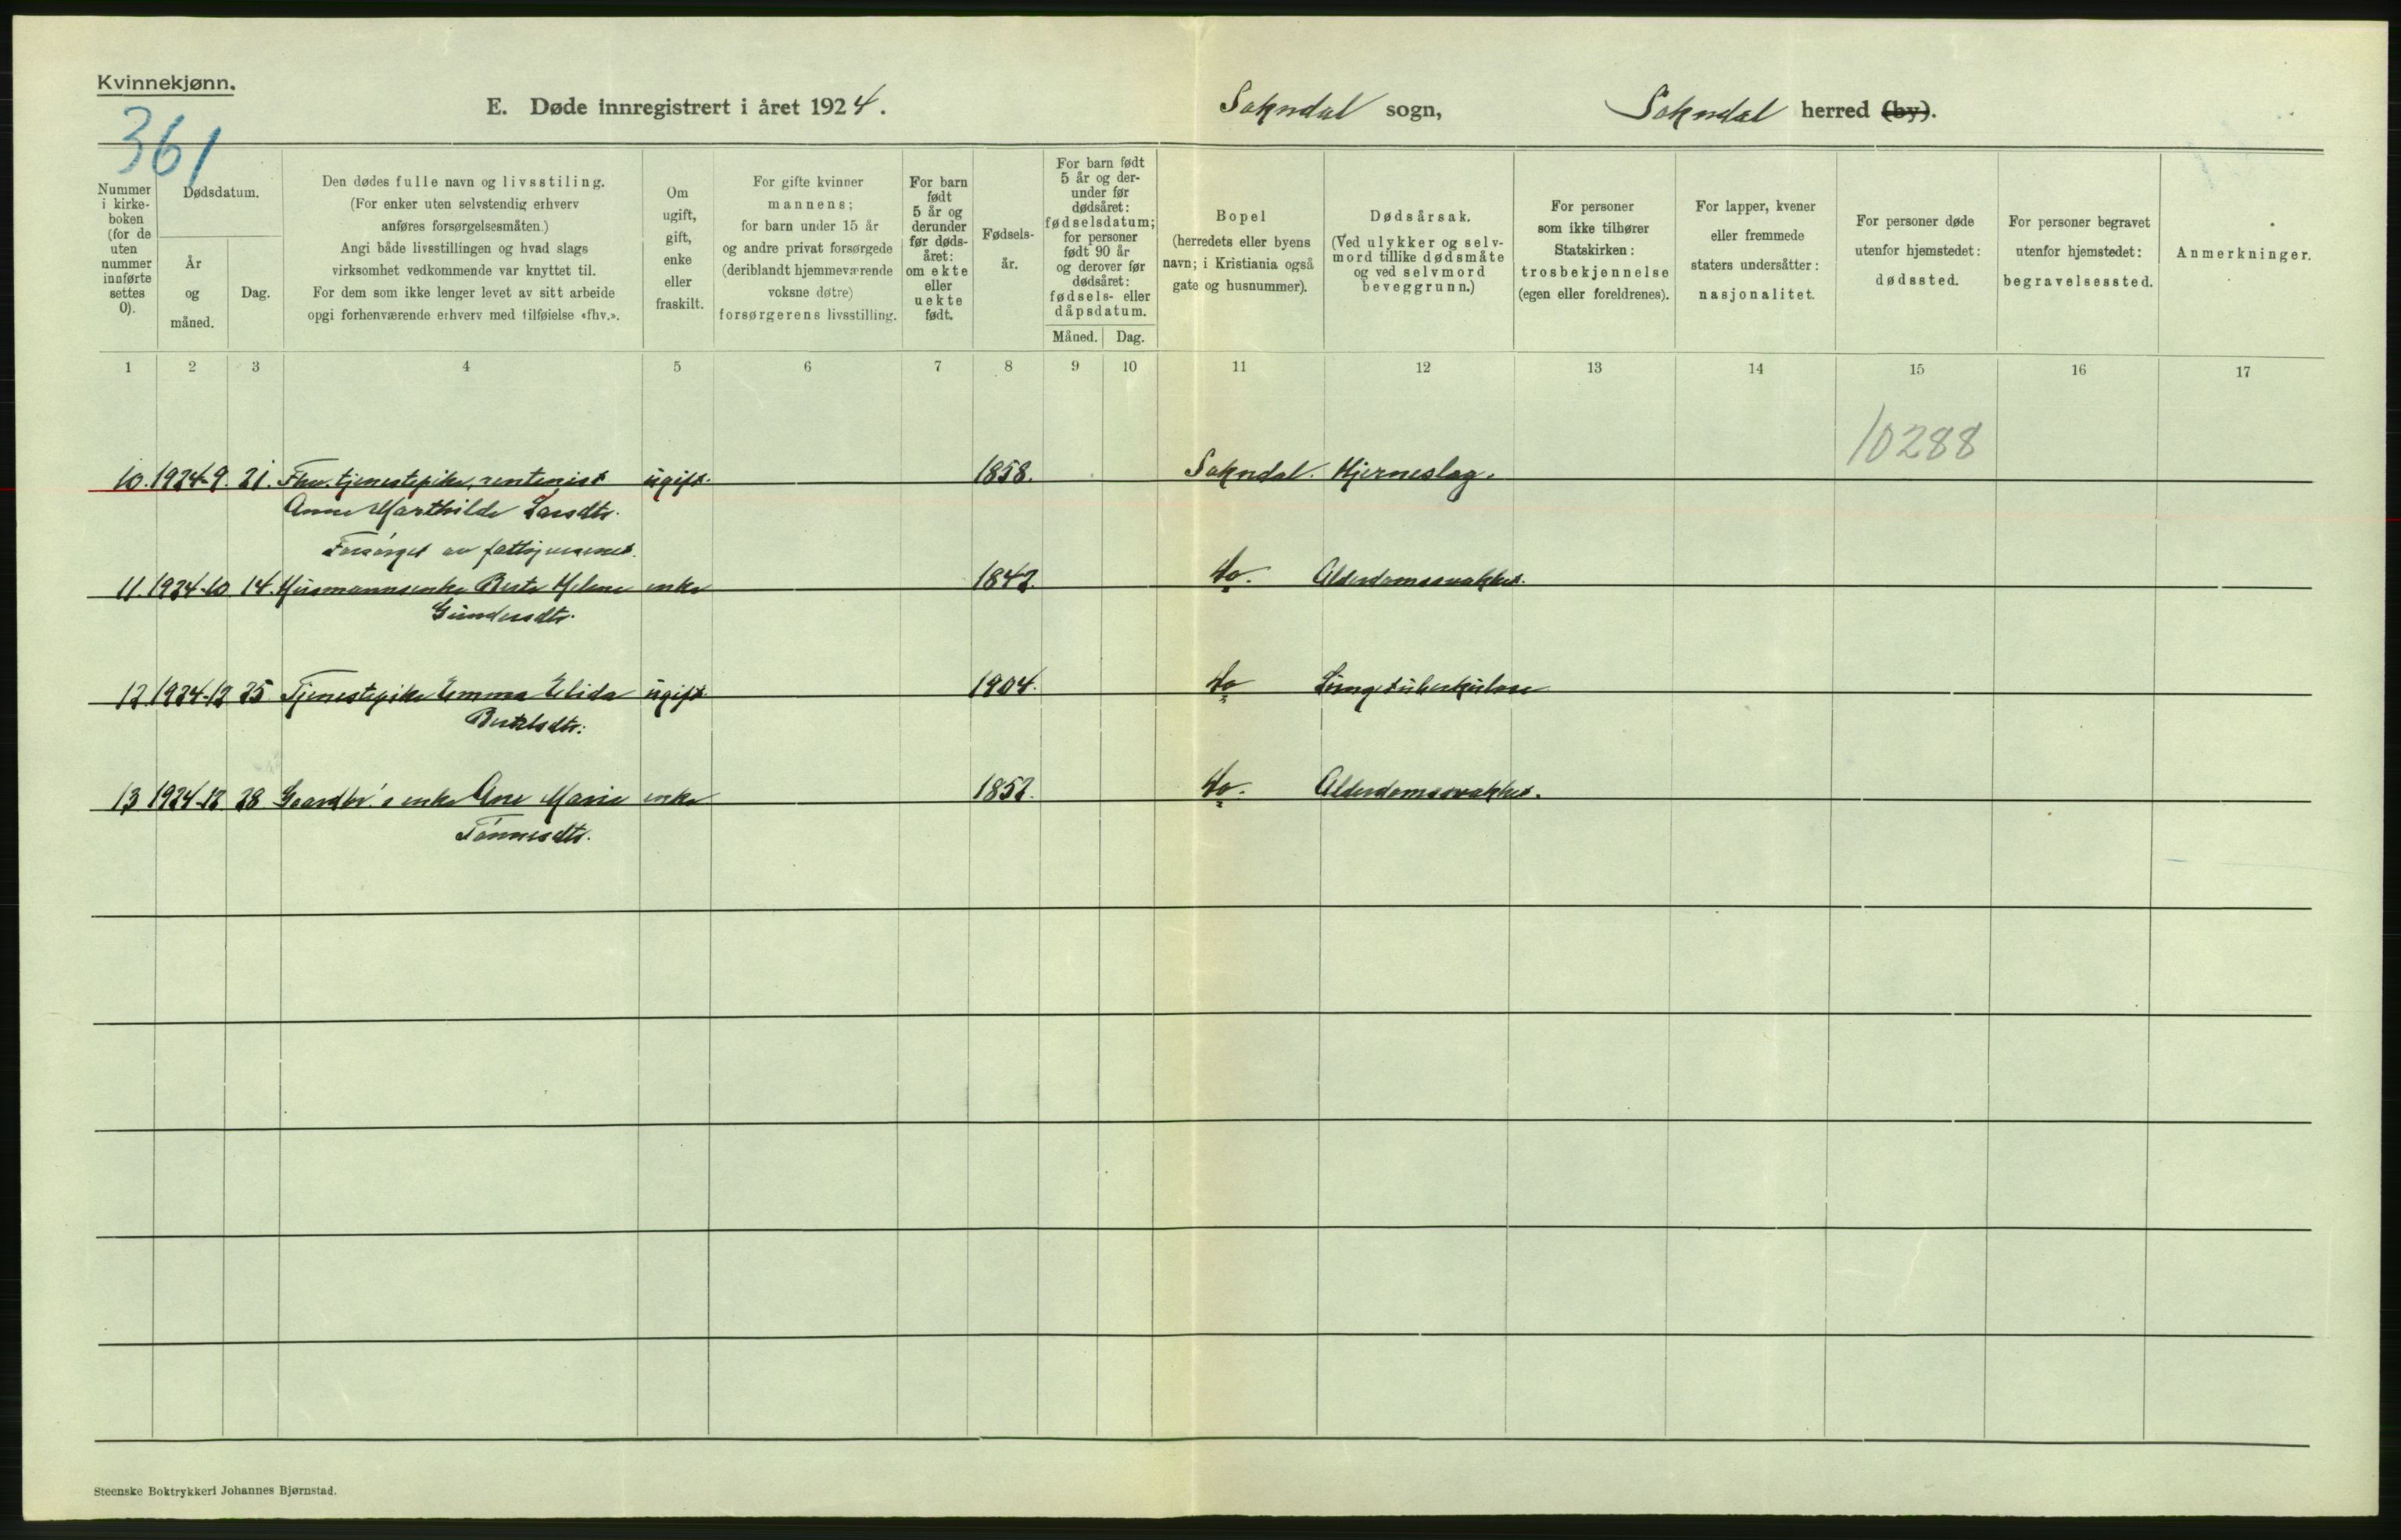 Kvinnekjønn.
361
E. Døde innregistrert i året 1924.
Sokndal sogn,
Sokndal herred (by).
Nummer i kirke-boken (for de uten nummer innførte settes 0).
Dødsdatum.
År og måned.
Dag.
Den dødes fulle navn og livsstiling.
(For enker uten selvstendig erhverv
anføres forsørgelsesmåten.)
Angi både livsstillingen og hvad slags
virksomhet vedkommende var knyttet til.
For dem som ikke lenger levet av sitt arbeide
opgi forhenværende erhverv med tilføielse «fhv.».
Om
ugift,
gift,
enke
eller
fraskilt.
For gifte kvinner
mannens;
for barn under 15 år
og andre privat forsørgede
(deriblandt hjemmeværende
voksne døtre)
forsørgerens livsstilling.
For barn
født
5 år og
derunder
før døds-
året:
om ekte
eller
uekte
født.
Fødsels-
år.
For barn født
5 år og der-
under før
dødsåret:
fødselsdatum;
for personer
født 90 år
og derover før
dødsåret:
fødsels- eller
dåpsdatum.
Måned. Dag.
Bopel
(herredets eller byens
navn; i Kristiania også
gate og husnummer).
Dødsårsak.
(Ved ulykker og selv-
mord tillike dødsmåte
og ved selvmord
beveggrunn.)
For personer
som ikke tilhører
Statskirken:
trosbekjennelse
(egen eller foreldrenes).
For lapper, kvener
eller fremmede
staters undersåtter:
nasjonalitet.
For personer døde
utenfor hjemstedet:
dødssted.
For personer begravet
utenfor hjemstedet:
begravelsessted.
Anmerkninger.
1 2 3 4 5 6 7 8 9 10 11 12 13 14 15 16 17
10288
10. 1924-9. 21. Fhv. tjenestepike, rentenist ugift. 1858. Sokndal. Hjerneslag.
Anne Marthilde Larsdtr.
Forsørget av fattigvesenet.
11. 1924-10 14. Husmannsenke Berta Helene enke 1842. do. Alderdomssvakhet.
Gundersdtr.
12. 1924-12 25 Tjenestepike Emma Elida ugift 1904. do Lungetuberkulose
Bertelsdtr.
13 1924-12 28 Gaardbr.'s enke Ane Marie enke 1852. do. Alderdomssvakhet.
Tønnesdtr.
Steenske Boktrykkeri Johannes Bjørnstad.